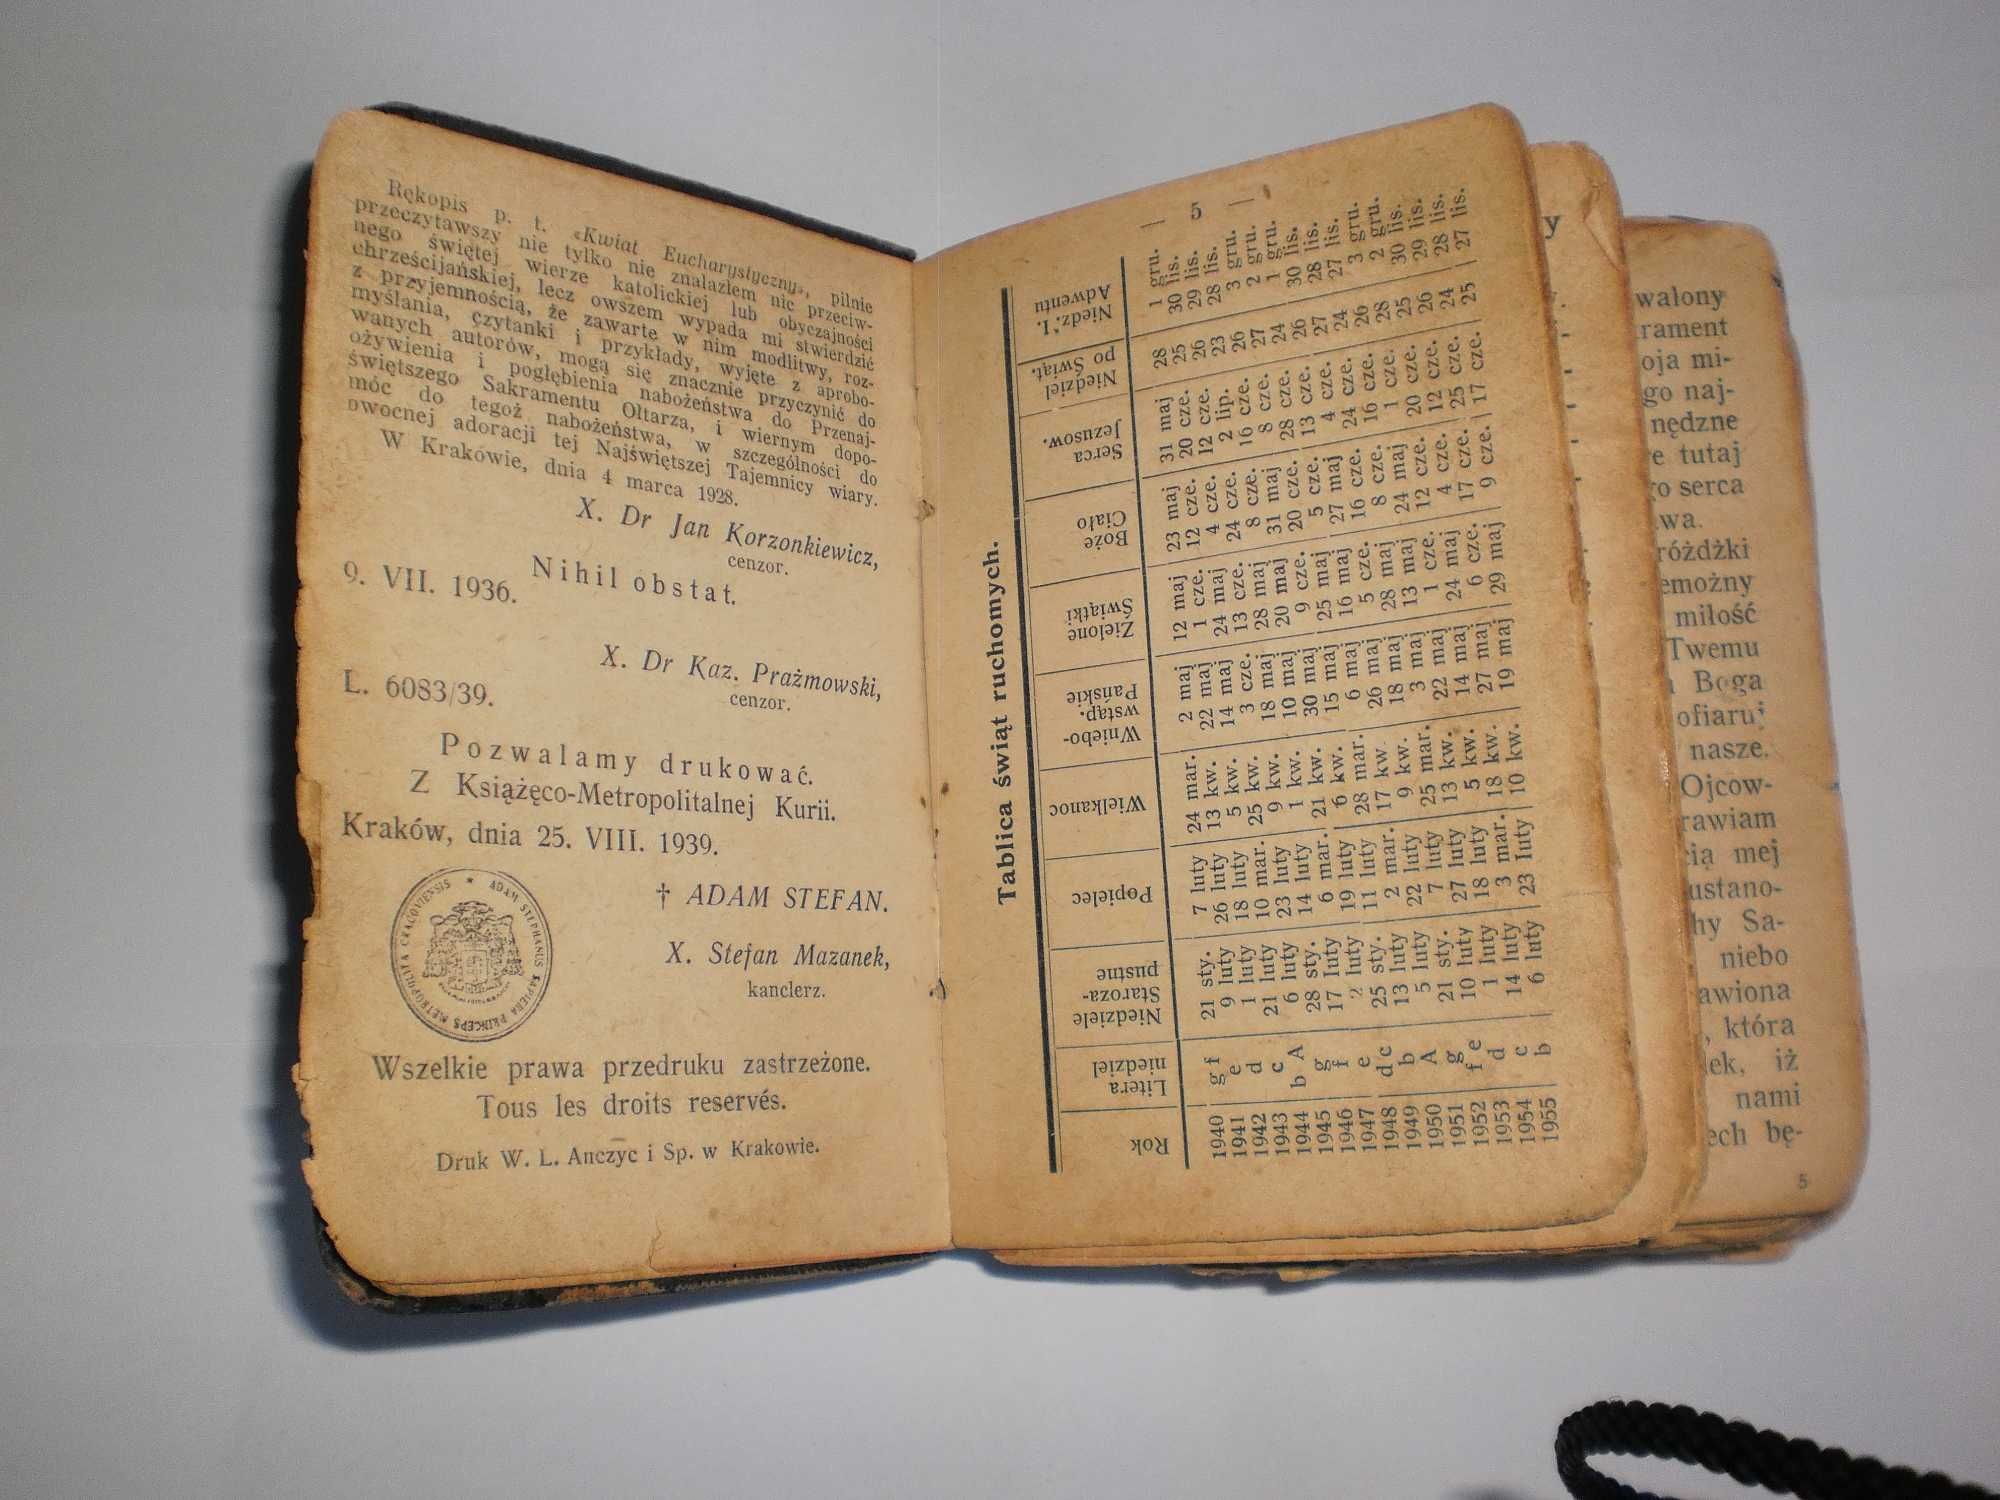 Rękopis p. t. «Kwiat Eucharystyczny», pilnie
przeczytawszy nie tylko nie znalazłem nic przeciw-
nego świętej wierze katolickiej lub obyczajności
chrześcijańskiej, lecz owszem wypada mi stwierdzić
z przyjemnością, że zawarte w nim modlitwy, roz-
myślania, czytanki i przykłady, wyjęte z aprobo-
wanych autorów, mogą się znacznie przyczynić do
ożywienia i pogłębienia nabożeństwa do Przenaj-
świętszego Sakramentu Ołtarza, i wiernym dopo-
móc do tegoż nabożeństwa, w szczególności do
owocnej adoracji tej Najświętszej Tajemnicy wiary.
W Krakowie, dnia 4 marca 1928.
X. Dr Jan Korzonkiewicz,
cenzor.
Nihil obstat.
9. VII. 1936.
X. Dr Kaz. Prażmowski,
cenzor.
L. 6083/39.
Pozwalamy drukować.
Z Książęco-Metropolitalnej Kurii.
Kraków, dnia 25. VIII. 1939.
† ADAM STEFAN.
X. Stefan Mazanek,
kanclerz.
ADAM STEPHANUS SAPIEHA PRINCEPS METROPOLITA CRACOVIENSIS
Wszelkie prawa przedruku zastrzeżone.
Tous les droits reservés.
Druk W. L. Anczyc i Sp. w Krakowie.
— 5 —
Tablica świąt ruchomych.
Rok Litera niedziel Niedziele Staroza-pustne Popielec Wielkanoc Wniebo-wstąp. Pańskie Zielone Świątki Boże Ciało Serca Jezusow. Niedziel po Świąt. Niedz. I. Adwentu
1940 g f 21 sty. 7 luty 24 mar. 2 maj 12 maj 23 maj 31 maj 28 1 gru.
1941 e 9 luty 26 luty 13 kw. 22 maj 1 cze. 12 cze. 20 cze. 25 30 lis.
1942 d 1 luty 18 luty 5 kw. 14 maj 24 maj 4 cze. 12 cze. 26 29 lis.
1943 c 21 luty 10 mar. 25 kw. 3 cze. 13 cze. 24 cze. 2 lip. 23 28 lis.
1944 b A 6 luty 23 luty 9 kw. 18 maj 28 maj 8 cze. 16 cze. 26 3 gru.
1945 g 28 sty. 14 luty 1 kw. 10 maj 20 maj 31 maj 8 cze. 27 2 gru.
1946 f 17 luty 6 mar. 21 kw. 30 maj 9 cze. 20 cze. 28 cze. 24 1 gru.
1947 e 2 luty 19 luty 6 kw. 15 maj 25 maj 5 cze. 13 cze. 26 30 lis.
1948 d c 25 sty. 11 luty 28 mar. 6 maj 16 maj 27 maj 4 cze. 27 28 lis.
1949 b 13 luty 2 mar. 17 kw. 26 maj 5 cze. 16 cze. 24 cze. 24 27 lis.
1950 A 5 luty 22 luty 9 kw. 18 maj 28 maj 8 cze. 16 cze. 26 3 gru.
1951 g 21 sty. 7 luty 25 mar. 3 maj 13 maj 24 maj 1 cze. 28 2 gru.
1952 f e 10 luty 27 luty 13 kw. 22 maj 1 cze. 12 cze. 20 cze. 25 30 lis.
1953 d 1 luty 18 luty 5 kw. 14 maj 24 maj 4 cze. 12 cze. 26 29 lis.
1954 c 14 luty 3 mar. 18 kw. 27 maj 6 cze. 17 cze. 25 cze. 24 28 lis.
1955 b 6 luty 23 luty 10 kw. 19 maj 29 maj 9 cze. 17 cze. 25 27 lis.
y
walony
rament
oja mi-
go naj-
nędzne
re tutaj
go serca
wa.
różdżki
emożny
miłość
Twemu
Boga
ofiaruj
nasze.
Ojcow-
rawiam
cią mej
ustano-
hy Sa-
niebo
awiona
, która
lek, iż
nami
ech bę-
5